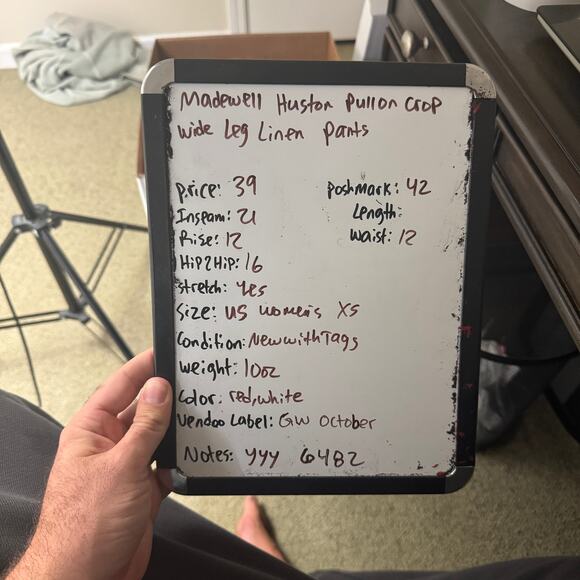 Madewell Huston Pullon Crop
Wide Leg Linen Pants
Price: 39
Poshmark: 42
Inseam: 21
Length:
Rise: 12
Waist: 12
HiP2HiP: 16
Stretch: Yes
Size: US women's XS
Condition: New with Tags
Weight: 10oz
Color: red, white
Vendoo Label: GW October
Notes: YYY 6482